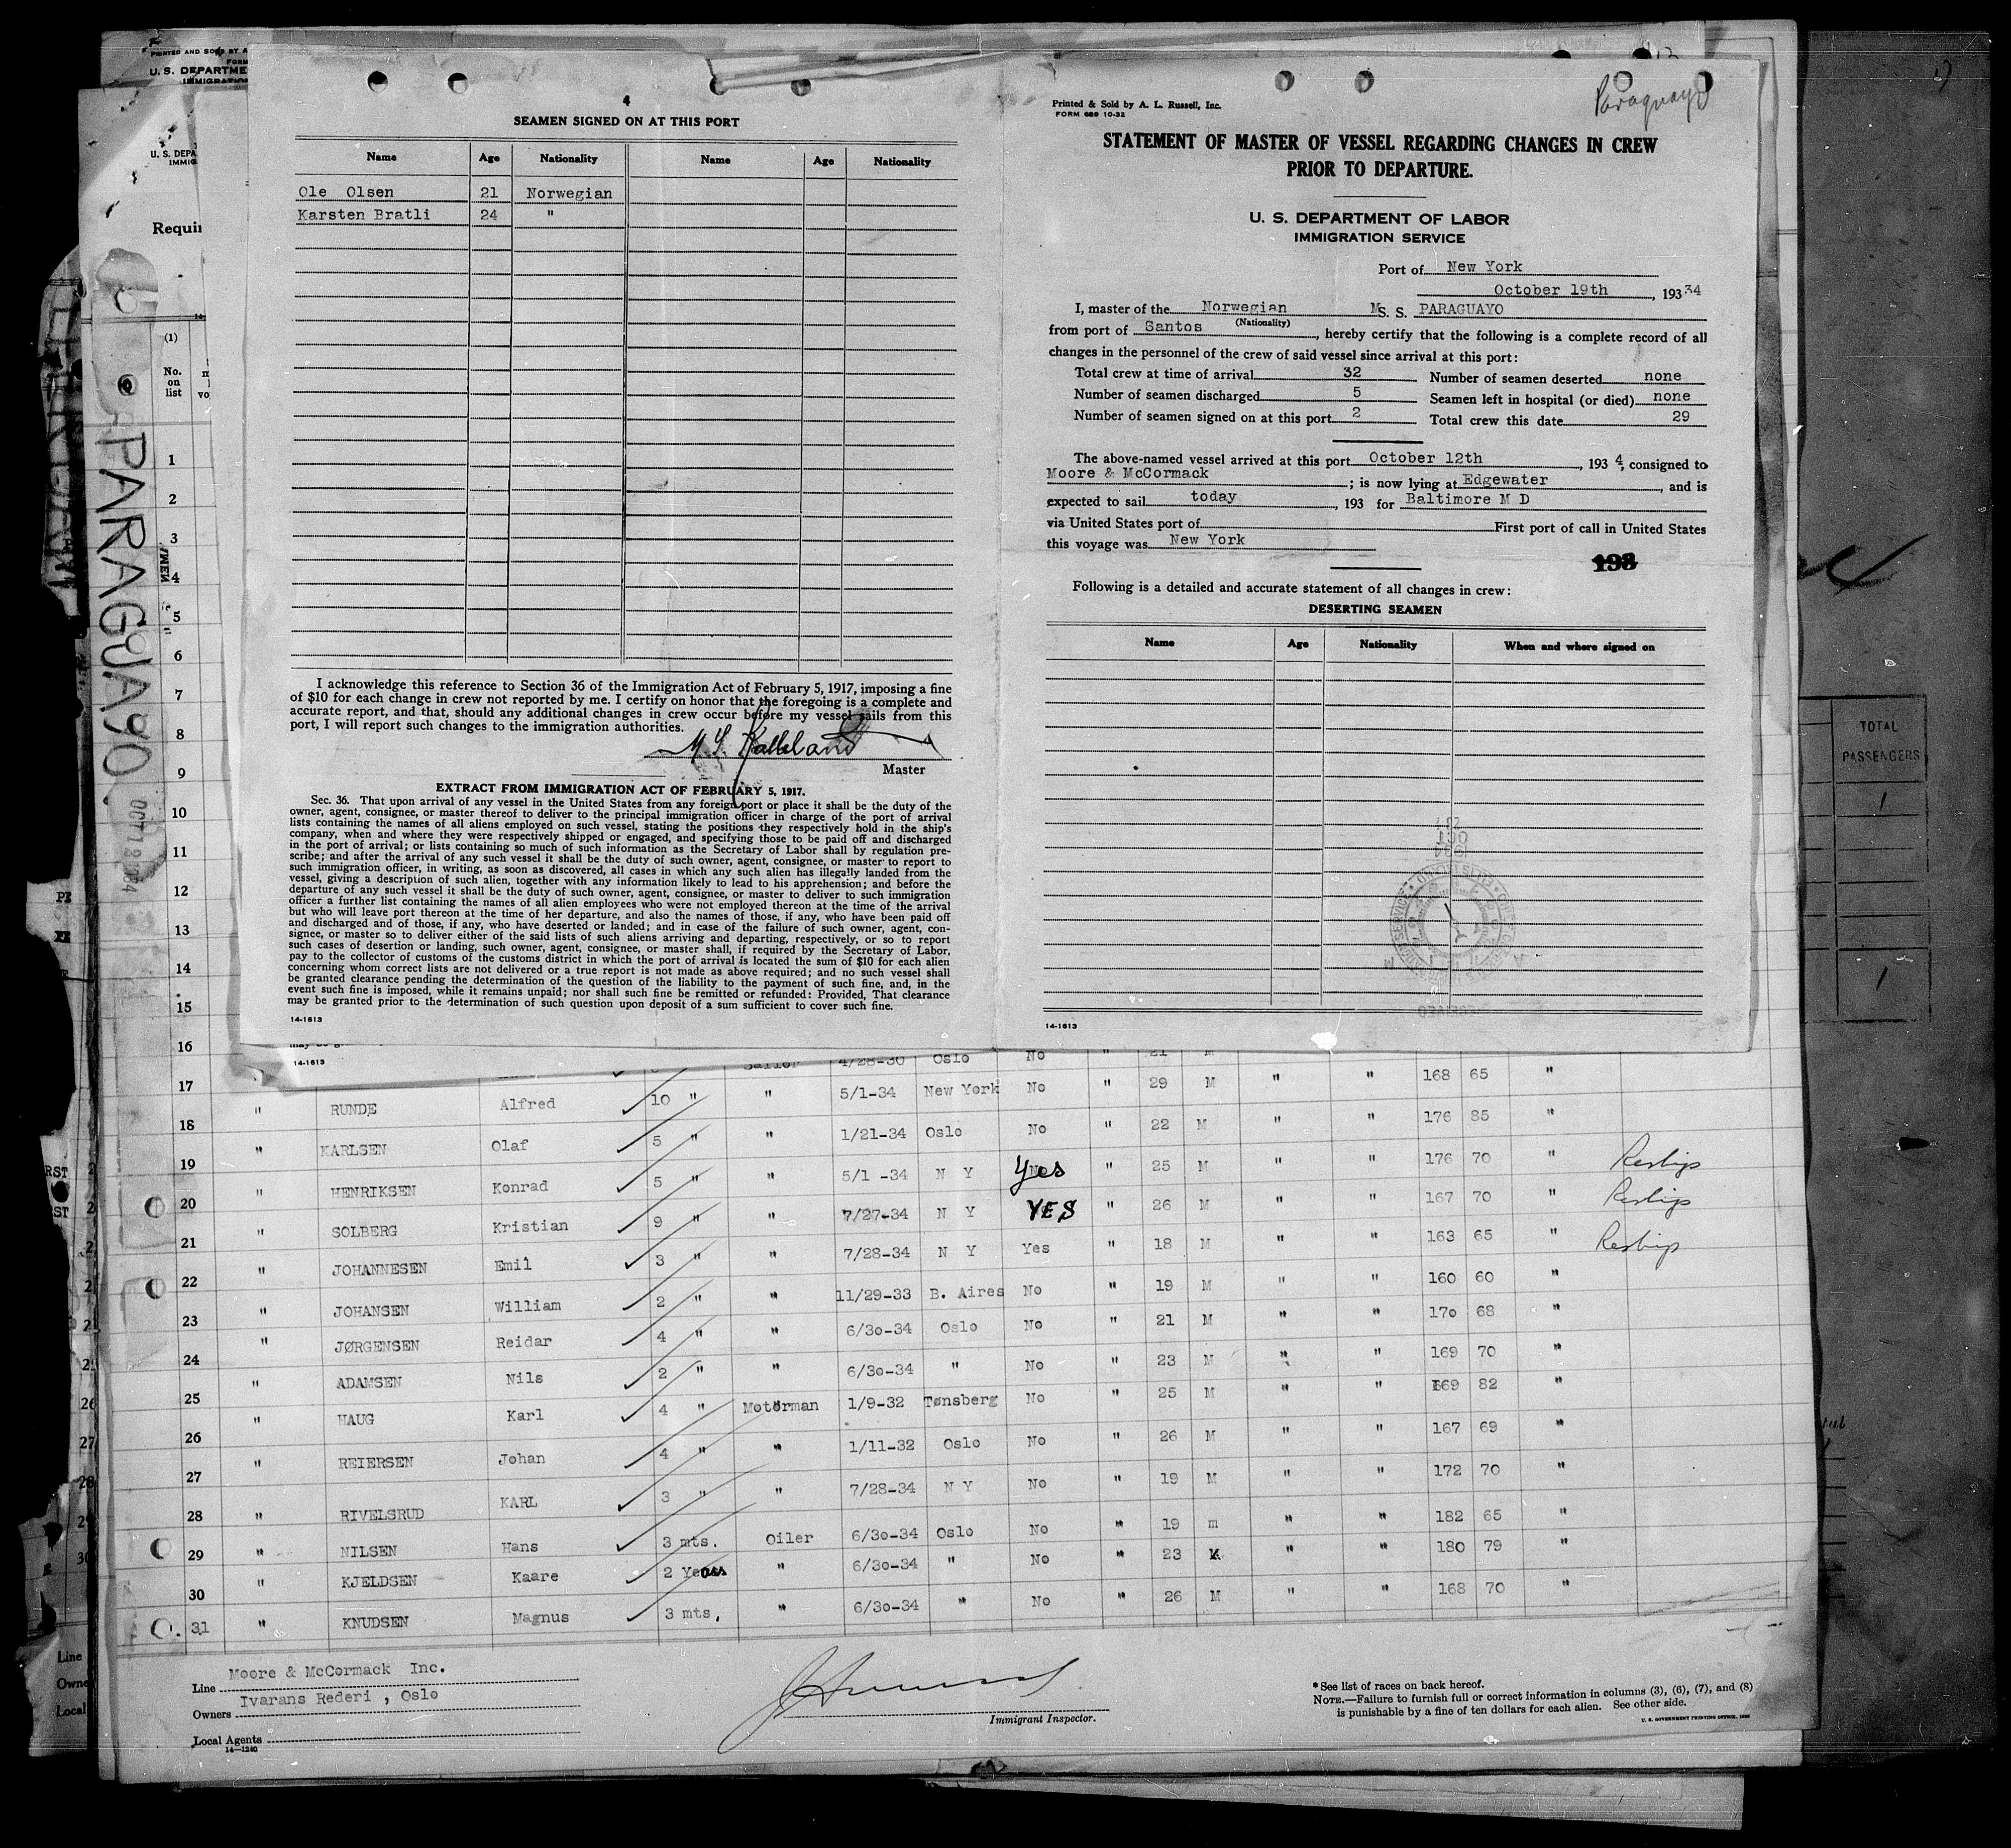 4
SEAMEN SIGNED ON AT THIS PORT
Name Age Nationality Name Age Nationality
Ole Olsen 21 Norwegian
Karsten Bratli 24 "
I acknowledge this reference to Section 36 of the Immigration Act of February 5, 1917, imposing a fine
of $10 for each change in crew not reported by me. I certify on honor that the foregoing is a complete and
accurate report, and that, should any additional changes in crew occur before my vessel sails from this
port, I will report such changes to the immigration authorities.
Master
EXTRACT FROM IMMIGRATION ACT OF FEBRUARY 5, 1917.
Sec. 36. That upon arrival of any vessel in the United States from any foreign port or place it shall be the duty of the
owner, agent, consignee, or master thereof to deliver to the principal immigration officer in charge of the port of arrival
lists containing the names of all aliens employed on such vessel, stating the positions they respectively hold in the ship's
company, when and where they were respectively shipped or engaged, and specifying those to be paid off and discharged
in the port of arrival; or lists containing so much of such information as the Secretary of Labor shall by regulation pre-
scribe; and after the arrival of any such vessel it shall be the duty of such owner, agent, consignee, or master to report to
such immigration officer, in writing, as soon as discovered, all cases in which any such alien has illegally landed from the
vessel, giving a description of such alien, together with any information likely to lead to his apprehension; and before the
departure of any such vessel it shall be the duty of such owner, agent, consignee, or master to deliver to such immigration
officer a further list containing the names of all alien employees who were not employed thereon at the time of the arrival
but who will leave port thereon at the time of her departure, and also the names of those, if any, who have been paid off
and discharged and of those, if any, who have deserted or landed; and in case of the failure of such owner, agent, con-
signee, or master so to deliver either of the said lists of such aliens arriving and departing, respectively, or so to report
such cases of desertion or landing, such owner, agent, consignee, or master shall, if required by the Secretary of Labor,
pay to the collector of customs of the customs district in which the port of arrival is located the sum of $10 for each alien
concerning whom correct lists are not delivered or a true report is not made as above required; and no such vessel shall
be granted clearance pending the determination of the question of the liability to the payment of such fine, and, in the
event such fine is imposed, while it remains unpaid; nor shall such fine be remitted or refunded: Provided, That clearance
may be granted prior to the determination of such question upon deposit of a sum sufficient to cover such fine.
14-1613
Printed & Sold by A. L. Russell, Inc.
FORM 689 10-32
Paraguayo
STATEMENT OF MASTER OF VESSEL REGARDING CHANGES IN CREW
PRIOR TO DEPARTURE.
U. S. DEPARTMENT OF LABOR
IMMIGRATION SERVICE
Port of New York
October 19th, 193 34
I, master of the Norwegian M S. S. PARAGUAYO
(Nationality)
from port of Santos, hereby certify that the following is a complete record of all
changes in the personnel of the crew of said vessel since arrival at this port:
Total crew at time of arrival 32 Number of seamen deserted none
Number of seamen discharged 5 Seamen left in hospital (or died) none
Number of seamen signed on at this port 2 Total crew this date 29
The above-named vessel arrived at this port October 12th, 193 4, consigned to
Moore & McCormack; is now lying at Edgewater, and is
expected to sail today, 193 for Baltimore M D
via United States port of First port of call in United States
this voyage was New York
193
Following is a detailed and accurate statement of all changes in crew:
DESERTING SEAMEN
Name Age Nationality When and where signed on
14-1613
PRINTED AND SOLD BY A
FORM
U. S. DEPARTME
IMMIGRATION
U. S. DEPA
IMMIG
Requir
(1)
No.
on
list
PARAGUAYO
1
2
3
4
5
6
7
8
9
10
11
12
13
14
15
TOTAL
PASSENGERS
1
1
14-1613
16 Sailor 4/28-30 Oslo No " 21 M
17 " RUNDE Alfred 10 " " 5/1-34 New York No " 29 M " " 168 65 "
18 " KARLSEN Olaf 5 " " 1/21-34 Oslo No " 22 M " " 176 85 "
19 " HENRIKSEN Konrad 5 " " 5/1 -34 N Y Yes " 25 M " " 176 70 "
20 " SOLBERG Kristian 9 " " 7/27-34 N Y YES " 26 M " " 167 70 "
21 " JOHANNESEN Emil 3 " " 7/28-34 N Y Yes " 18 M " " 163 65 "
22 " JOHANSEN William 2 " " 11/29-33 B. Aires No " 19 M " " 160 60 "
23 " JØRGENSEN Reidar 4 " " 6/30-34 Oslo No " 21 M " " 170 68 "
24 " ADAMSEN Nils 2 " " 6/30-34 " No " 23 M " " 169 70 "
25 " HAUG Karl 4 " Motorman 1/9-32 Tønsberg No " 25 M " " 169 82 "
26 " REIERSEN Johan 4 " " 1/11-32 Oslo No " 26 M " " 167 69 "
27 " RIVELSRUD KARL 3 " " 7/28-34 N Y No " 19 M " " 172 70 "
28 " NILSEN Hans 3 mts. Oiler 6/30-34 Oslo No " 19 m " " 182 65 "
29 " KJELDSEN Kaare 2 Years " 6/30-34 " No " 23 M " " 180 79 "
30
31 " KNUDSEN Magnus 3 mts, " 6/30-34 " No " 26 M " " 168 70 "
Line Moore & McCormack Inc.
Owners Ivarans Rederi , Oslo
Local Agents
14-1240
Immigrant Inspector.
*See list of races on back hereof.
NOTE.—Failure to furnish full or correct information in columns (3), (6), (7), and (8)
is punishable by a fine of ten dollars for each alien. See other side.
U. S. GOVERNMENT PRINTING OFFICE
Line
Owne
Local